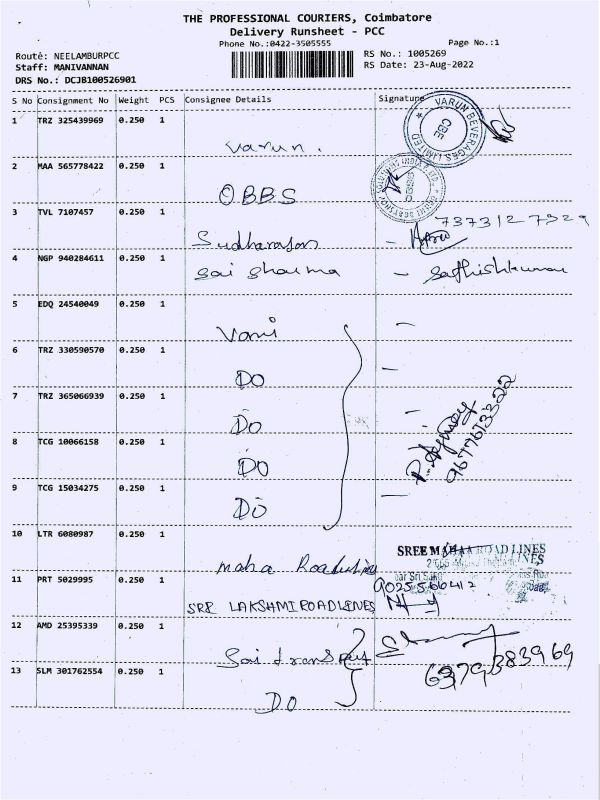 THE PROFESSIONAL COURIERS, Coimbatore
Delivery Runsheet - PCC
Phone No.:0422-3505555
Page No.:1
Route: NEELAMBURPCC
RS No.: 1005269
Staff: MANIVANNAN
RS Date: 23-Aug-2022
DRS No.: DCJB100526901
S No Consignment No Weight PCS Consignee Details Signature
1 TRZ 325439969 0.250 1
Varun.
VARUN BEVERAGES LIMITED
CBE
2 MAA 565778422 0.250 1
OBBS
3 TVL 7107457 0.250 1
7373127329
Sudharason -
4 NGP 940284611 0.250 1
Sai Sharma - Sathishkumar
5 EDQ 24540049 0.250 1
Vani -
6 TRZ 330590570 0.250 1
DO -
7 TRZ 365066939 0.250 1
DO -
8 TCG 10066158 0.250 1
DO
9677613322
9 TCG 15034275 0.250 1
DO -
10 LTR 6080987 0.250 1
SREE MAHAA ROAD LINES
Maha Roadlines
11 PRT 5029995 0.250 1
SRE LAKSHMI ROADLINES
12 AMD 25395339 0.250 1
Sai transport
6379383969
13 SLM 301762554 0.250 1
DO